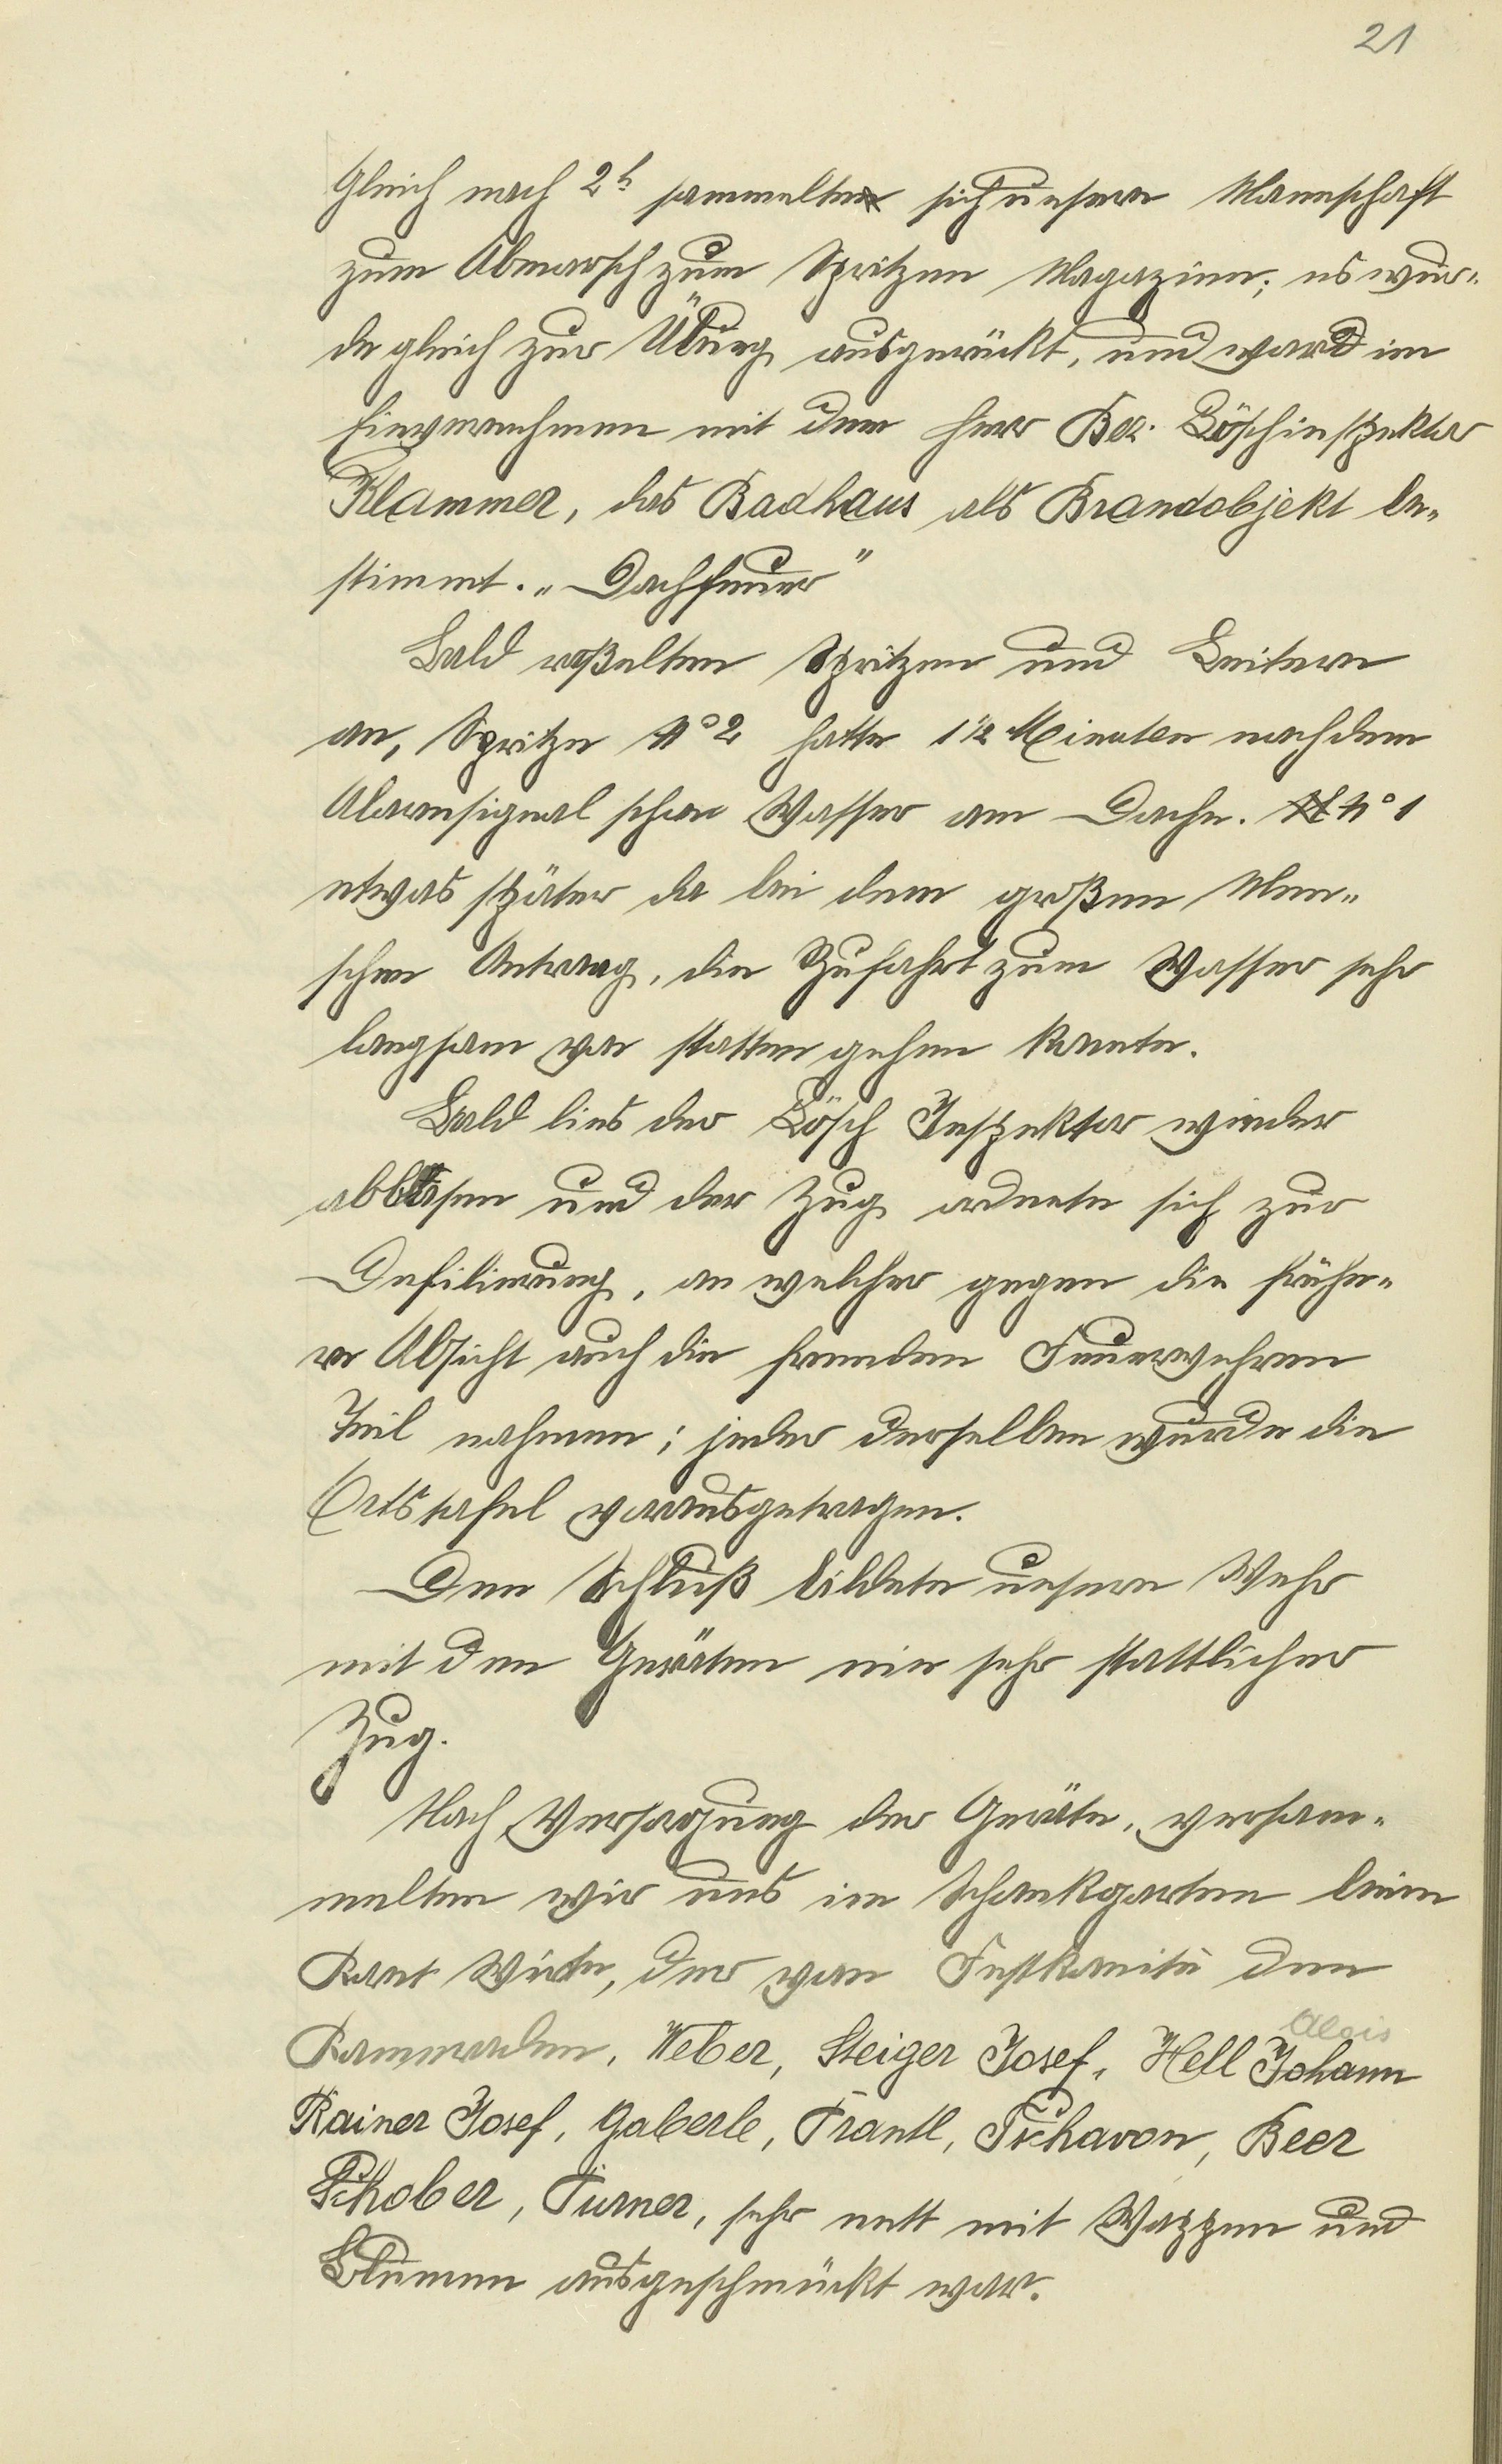 21
Gleich nach 2h sammelte sich unsere Mannschaft
zum Abmarsch zum Spritzen Magazine; es wur„
de gleich zur Übung ausgerückt, und ward im
Einvernehmen mit dem Herr Bez. Löschinspektor
Klammer, das Badhaus als Brandobjekt be„
stimmt. „Dachfeuer"
Bald raßelten Spritzen und Leitern
an, Spritze No 2 hatte 1 1/2 Minuten nach dem
Alarmsignal schon Wasser am Dache. No 1
etwas später da bei dem großen Men„
schen Antrang, die Zufahrt zum Wasser sehr
langsam von statten gehen konnte.
Bald lies der Lösch Inspektor wieder
abblasen und der Zug ordnete sich zur
Defilierung, an welcher gegen die frühe„
re Absicht auch die fremden Feuerwehren
Teil nahmen; jeder derselben wurde die
Ortstafel vorausgetragen.
Den Schluß bildete unsere Wehr
mit den Geräten ein sehr stattlicher
Zug.
Nach Versorgung der Geräte, versam„
melten wir uns im Schankgarten beim
Ront Wirte, der von Festkomité den
Kammeraden, Weber, Steiger Josef, Hell Johann
Alois
Rainer Josef, Gaberle, Trantl, Tschavon, Beer
Schober, Turner, sehr nett mit Wappen und
Blumen ausgeschmückt war.